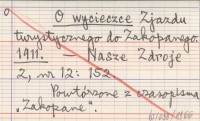 O wycieczce Zjazdu
turystycznego do Zakopanego.
1911. Nasze Zdroje
2, nr 12: 152.
Powtórzone z czasopisma
„Zakopane".